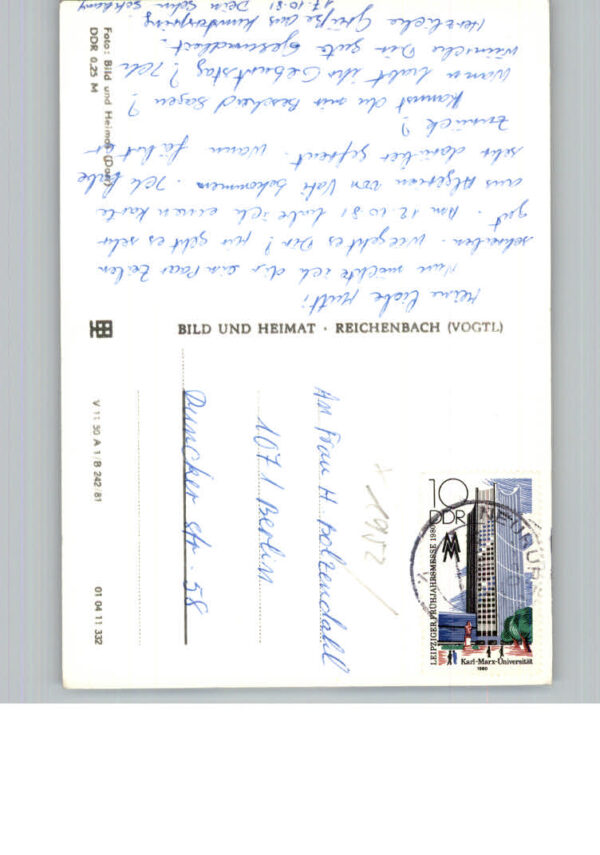 Meine liebe Mutti!
Nun möchte ich dir ein Paar Zeilen
schreiben. Wie geht es Dir? Mir geht es sehr
gut. Am 12.10.81 habe ich einen Karte
aus Algerien von Vati bekommen. Ich habe
sehr darüber gefreut. Wann fährt er
Zurück?
Kannst du mir Bescheid Sagen?
Wann habt ihr Geburtstag? Ich
wünsche Dir gute Gesundheit.
Herzliche Grüße aus
17.10.81 Dein Sohn
Foto: Bild und Heimat
DDR 0,25 M
BILD UND HEIMAT · REICHENBACH (VOGTL)
V 11 50 A 1/B 242/81
01 04 11 332
An Frau H. Bolzendahl
1071 Berlin
Duncker str. 58
1952
10
DDR
LEIPZIGER FRÜHJAHRSMESSE 1980
Karl-Marx-Universität
1980